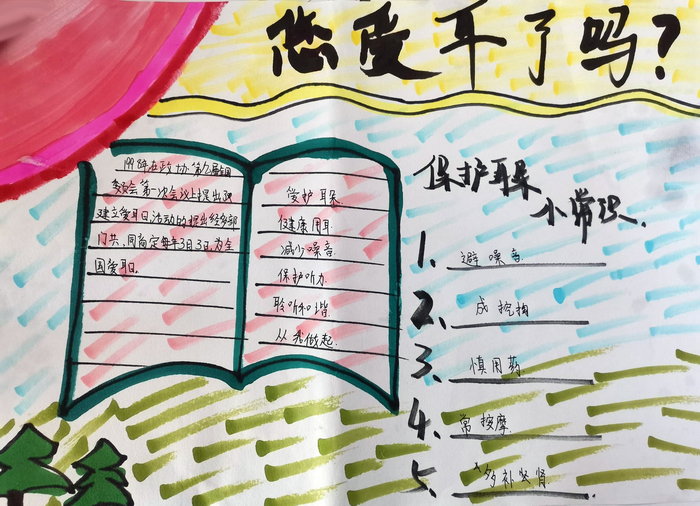 您爱耳了吗?
1998年在政协第九届全国
委员会第一次会议上提出
建立爱耳日活动的提出经多部
门共同商定每年3月3日为全
国爱耳日.
爱护耳朵
健康用耳
减少噪音
保护听力
聆听和谐
从我做起.
保护耳朵
小常识.
1、避噪音
2、戒挖掏
3、慎用药
4、常按摩
5、多补坚肾